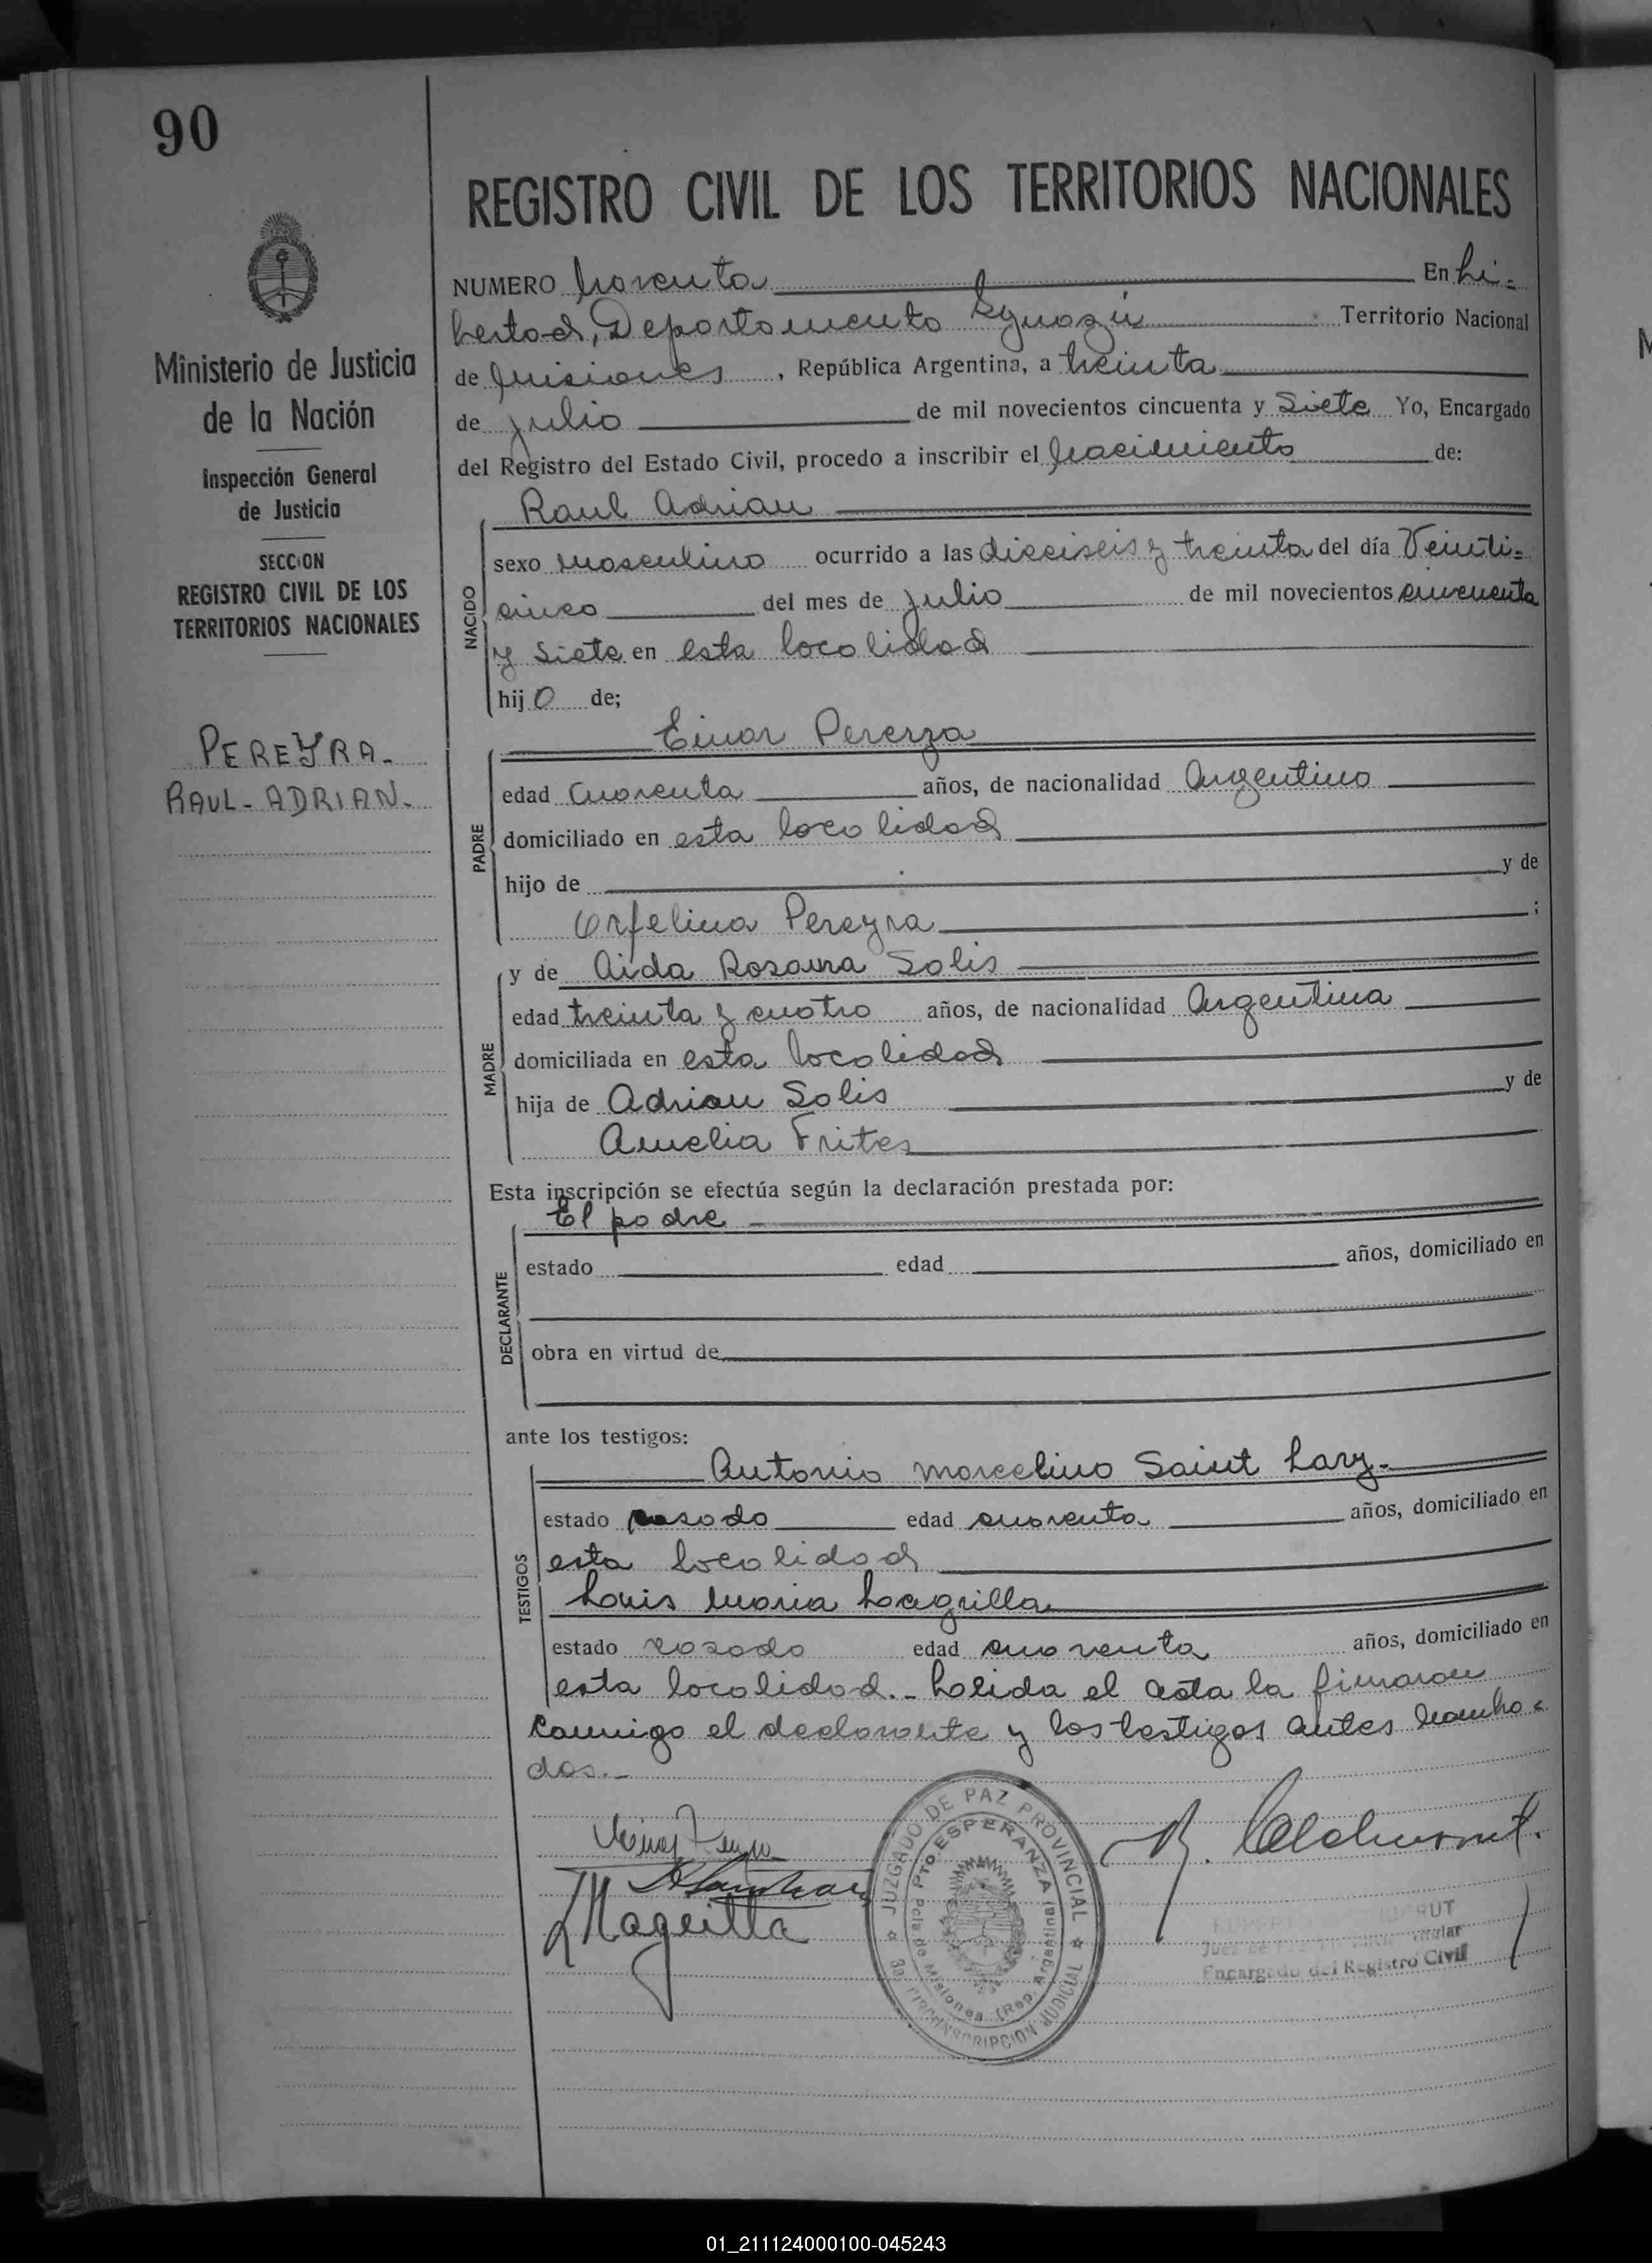 90
REGISTRO CIVIL DE LOS TERRITORIOS NACIONALES
Ministerio de Justicia
de la Nación
Inspección General
de Justicia
SECCION
REGISTRO CIVIL DE LOS
TERRITORIOS NACIONALES
PEREYRA.
RAUL-ADRIAN.
NUMERO Noventa En Li-
bertad, Departamento Iguazú Territorio Nacional
de Misiones, República Argentina, a treinta
de julio de mil novecientos cincuenta y Siete Yo, Encargado
del Registro del Estado Civil, procedo a inscribir el Nacimiento de:
NACIDO
Raul Adrian
sexo masculino ocurrido a las dieciseis y treinta del día Veinti-
cinco del mes de Julio de mil novecientos cincuenta
y Siete en esta localidad
hijo de;
PADRE
Einar Pereyra
edad Cuarenta años, de nacionalidad Argentino
domiciliado en esta localidad
hijo de y de
Orfelina Pereyra ;
MADRE
y de Aida Rosaura Solis
edad treinta y cuatro años, de nacionalidad Argentina
domiciliada en esta localidad
hija de Adrian Solis y de
Amelia Frites
Esta inscripción se efectúa según la declaración prestada por:
DECLARANTE
El padre
estado edad años, domiciliado en
obra en virtud de
ante los testigos:
TESTIGOS
Antonio Marcelino Saint Lary.
estado casado edad cuarenta años, domiciliado en
esta localidad
Louis Maria
estado casado edad cuarenta años, domiciliado en
esta localidad.- Leida el acta la firmaron
conmigo el declarante y los testigos antes nombra-
dos.-
JUZGADO DE PAZ PROVINCIAL
Pto. ESPERANZA
Pcia de Misiones (Rep. Argentina)
3a. CIRCUNSCRIPCION JUDICIAL
Juez de Paz Titular
Encargado del Registro Civil
01_211124000100-045243